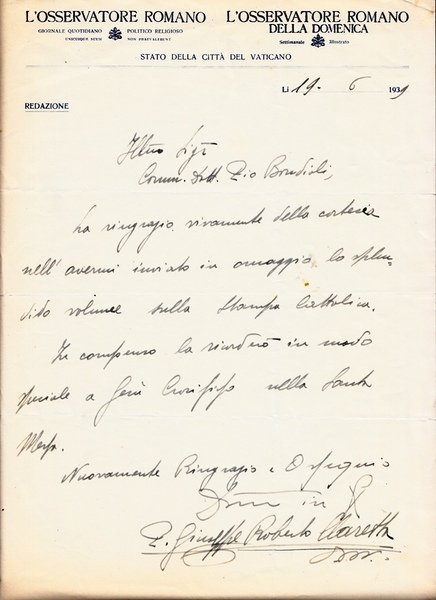 L'OSSERVATORE ROMANO
GIORNALE QUOTIDIANO POLITICO RELIGIOSO
UNICUIQUE SUUM NON PRAEVALEBUNT
L'OSSERVATORE ROMANO
DELLA DOMENICA
Settimanale Illustrato
STATO DELLA CITTÀ DEL VATICANO
Li 19 - 6 1939
REDAZIONE
Illmo Sigr
Comm. Dott. Pio Bondioli,
La ringrazio vivamente della cortesia
nell'avermi inviato in omaggio lo splen-
dido volume sulla Stampa Cattolica.
In compenso la ricorderò in modo
speciale a Gesù Crocifisso nella Santa
Messa.
Nuovamente Ringrazio e Ossequio
in
P. Giuseppe Roberto Claretta